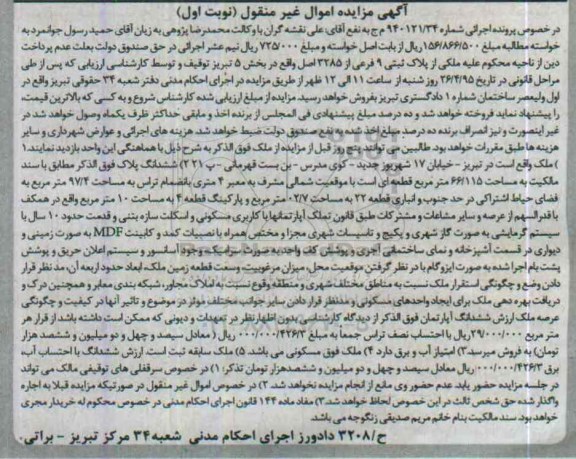 آگهی مزایده اموال غیر منقول (نوبت اول)
در خصوص پرونده اجرائی شماره ۹۴۰۱۲۱/۳۴ م ج به نفع آقای: علی نقشه گران با وکالت محمدرضا پژوهی به زیان آقای حمید رسول جوانمرد به
خواسته مطالبه مبلغ ۱۵۶/۸۶۶/۵۰۰ ریال از بابت اصل خواسته و مبلغ ۷۲۵/۰۰۰ ریال نیم عشر اجرائی در حق صندوق دولت بعلت عدم پرداخت
دین از ناحیه محکوم علیه ملکی از پلاک ثبتی ۹ فرعی از ۳۲۸۵ اصل واقع در بخش ۵ تبریز توقیف و توسط کارشناسی ارزیابی که پس از طی
مراحل قانونی در تاریخ ۲۶/۴/۹۵ روز شنبه از ساعت ۱۱ الی ۱۲ ظهر از طریق مزایده در اجرای احکام مدنی دفتر شعبه ۳۴ حقوقی تبریز واقع در
اول ولیعصر ساختمان شماره ۱ دادگستری تبریز بفروش خواهد رسید. مزایده از مبلغ ارزیابی شده کارشناس شروع و به کسی که بالاترین قیمت،
را پیشنهاد نماید فروخته خواهد شد و ده درصد مبلغ پیشنهادی فی المجلس از برنده اخذ و مابقی حداکثر ظرف یکماه وصول خواهد شد در
غیر اینصورت و نیز انصراف برنده ده درصد مبلغ اولیه به نفع صندوق دولت ضبط خواهد شد. هزینه های اجرائی و عوارض شهرداری و سایر
هزینه ها طبق مقررات خواهد بود. طالبین می توانند پنج روز قبل از مزایده از ملک فوق الذکر به شرح ذیل با هماهنگی این واحد بازدید نمایند. ۱
) ملک واقع است در تبریز – خیابان ۱۷ شهریور جدید - کوی مدرس - بن بست قهرمانی - پ ۲۲۱) ششدانگ پلاک فوق الذکر مطابق با سند
مالکیت به مساحت ۶۶/۱۱۵ متر مربع قطعه ای است با موقعیت شمالی مشرف به معبر ۴ متری بانضمام تراس به مساحت ۹۷/۴ متر مربع به
فضای حیاط اشتراکی در حد جنوب و انباری قطعه ۲۲ به مساحت ۰۲/۷ متر مربع و پارکینگ قطعه ۴ به مساحت ۱۰ متر مربع واقع در همکف
با قدرالسهم از عرصه و سایر مشاعات و مشترکات طبق قانون تملک آپارتمانها با کاربری مسکونی و اسکلت سازه بتنی و قدمت حدود ۱۰ سال با
سیستم گرمایشی به صورت گاز شهری و پکیج و تاسیسات شهری مجزا و مختص همراه با نصبیات کمد و کابینت MDF به صورت زمینی و
دیواری در قسمت آشپزخانه و نمای ساختمانی آجری و پوشش کف واحد به صورت سرامیک و وجود آسانسور و سیستم اعلان حریق و پوشش
پشت بام اجرا شده به صورت ایزوگام با در نظر گرفتن موقعیت محل، میزان مرغوبیت، وسعت قطعه زمین ملک، ابعاد حدود اربعه آن، مد نظر قرار
دادن وضع و چگونگی استقرار ملک نسبت به مناطق مختلف شهری و منطقه وقوع نسبت به املاک مجاور، شبکه بندی معابر و همچنین درک و
دریافت بهره دهی ملک برای ایجاد واحدهای مسکونی و مدنظر قرار دادن سایر جوانب مختلف موثر در موضوع و تاثیر آنها در کیفیت و چگونگی
عرصه ملک ارزش ششدانگ آپارتمان فوق الذکر از دیدگاه کارشناسی بدون اظهار نظر در تعهدات و دیونی که ممکن است داشته باشد از قرار هر
متر مربع ۲۹/۰۰۰/۰۰۰ ریال با احتساب نصف تراس جمعاً به مبلغ ۰۰۰/۰۰۰/۴۲۶/۳ ریال ( معادل سیصد و چهل و دو میلیون و ششصد هزار
تومان) به فروش میرسد. ۳) امتیاز آب و برق دارد ۴) ملک فوق مسکونی می باشد. ۵) ملک سابقه ثبت است ارزش ششدانگ با احتساب آب،
برق ۰۰۰/۰۰۰/۴۲۶/۳ ریال معادل سیصد و چهل و دو میلیون و ششصدهزار تومان تذکر: ۱) در خصوص سرقفلی های توقیفی مالک می تواند
در جلسه مزایده حضور یابد. عدم حضور وی مانع از انجام مزایده نخواهد شد. ۲) در خصوص اموال غیر منقول در صورتیکه مزایده قبلا به اجاره
واگذار شده حق شخص ثالث در این خصوص لحاظ خواهد شد. ۳) مفاد ماده ۱۴۴ قانون اجرای احکام مدنی در خصوص محکوم له خریدار مجری
خواهد بود. سند مالکیت بنام خانم مریم صدیقی زنگوجه می باشد.
ح/۳۲۰۸ دادورز اجرای احکام مدنی شعبه ۳۴ مرکز تبریز - براتی.